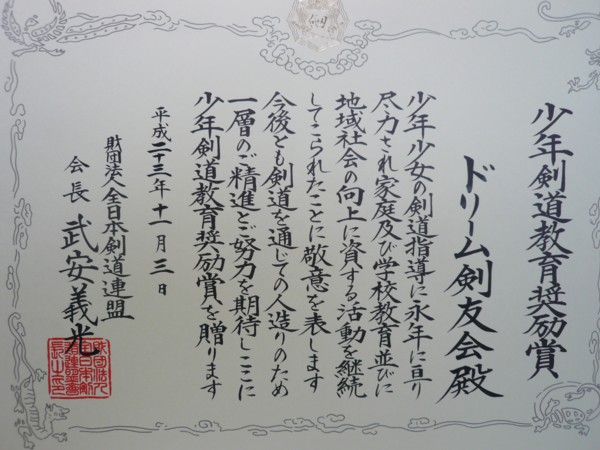 少年剣道教育奨励賞
ドリーム剣友会殿
少年少女の剣道指導に永年に亘り
尽力され家庭及び学校教育並びに
地域社会の向上に資する活動を継続
してこられたことに敬意を表します
今後とも剣道を通じての人造りのため
一層のご精進とご努力を期待しここに
少年剣道教育奨励賞を贈ります
平成二十三年十一月三日
財団法人全日本剣道連盟
会長 武安義光